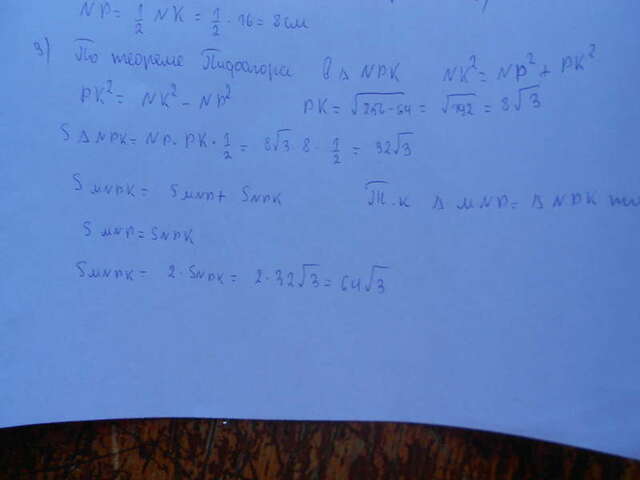 NP = 1/2 NK = 1/2 · 16 = 8 см
3) По теореме Пифагора в Δ NPK NK² = NP² + PK²
PK² = NK² - NP² PK = √256-64 = √192 = 8√3
SΔNPK = NP · PK · 1/2 = 8√3 · 8 · 1/2 = 32√3
SMNPK = SMNP + SNPK Т.к Δ MNP = Δ NPK то
SMNP = SNPK
SMNPK = 2 · SNPK = 2 · 32√3 = 64√3